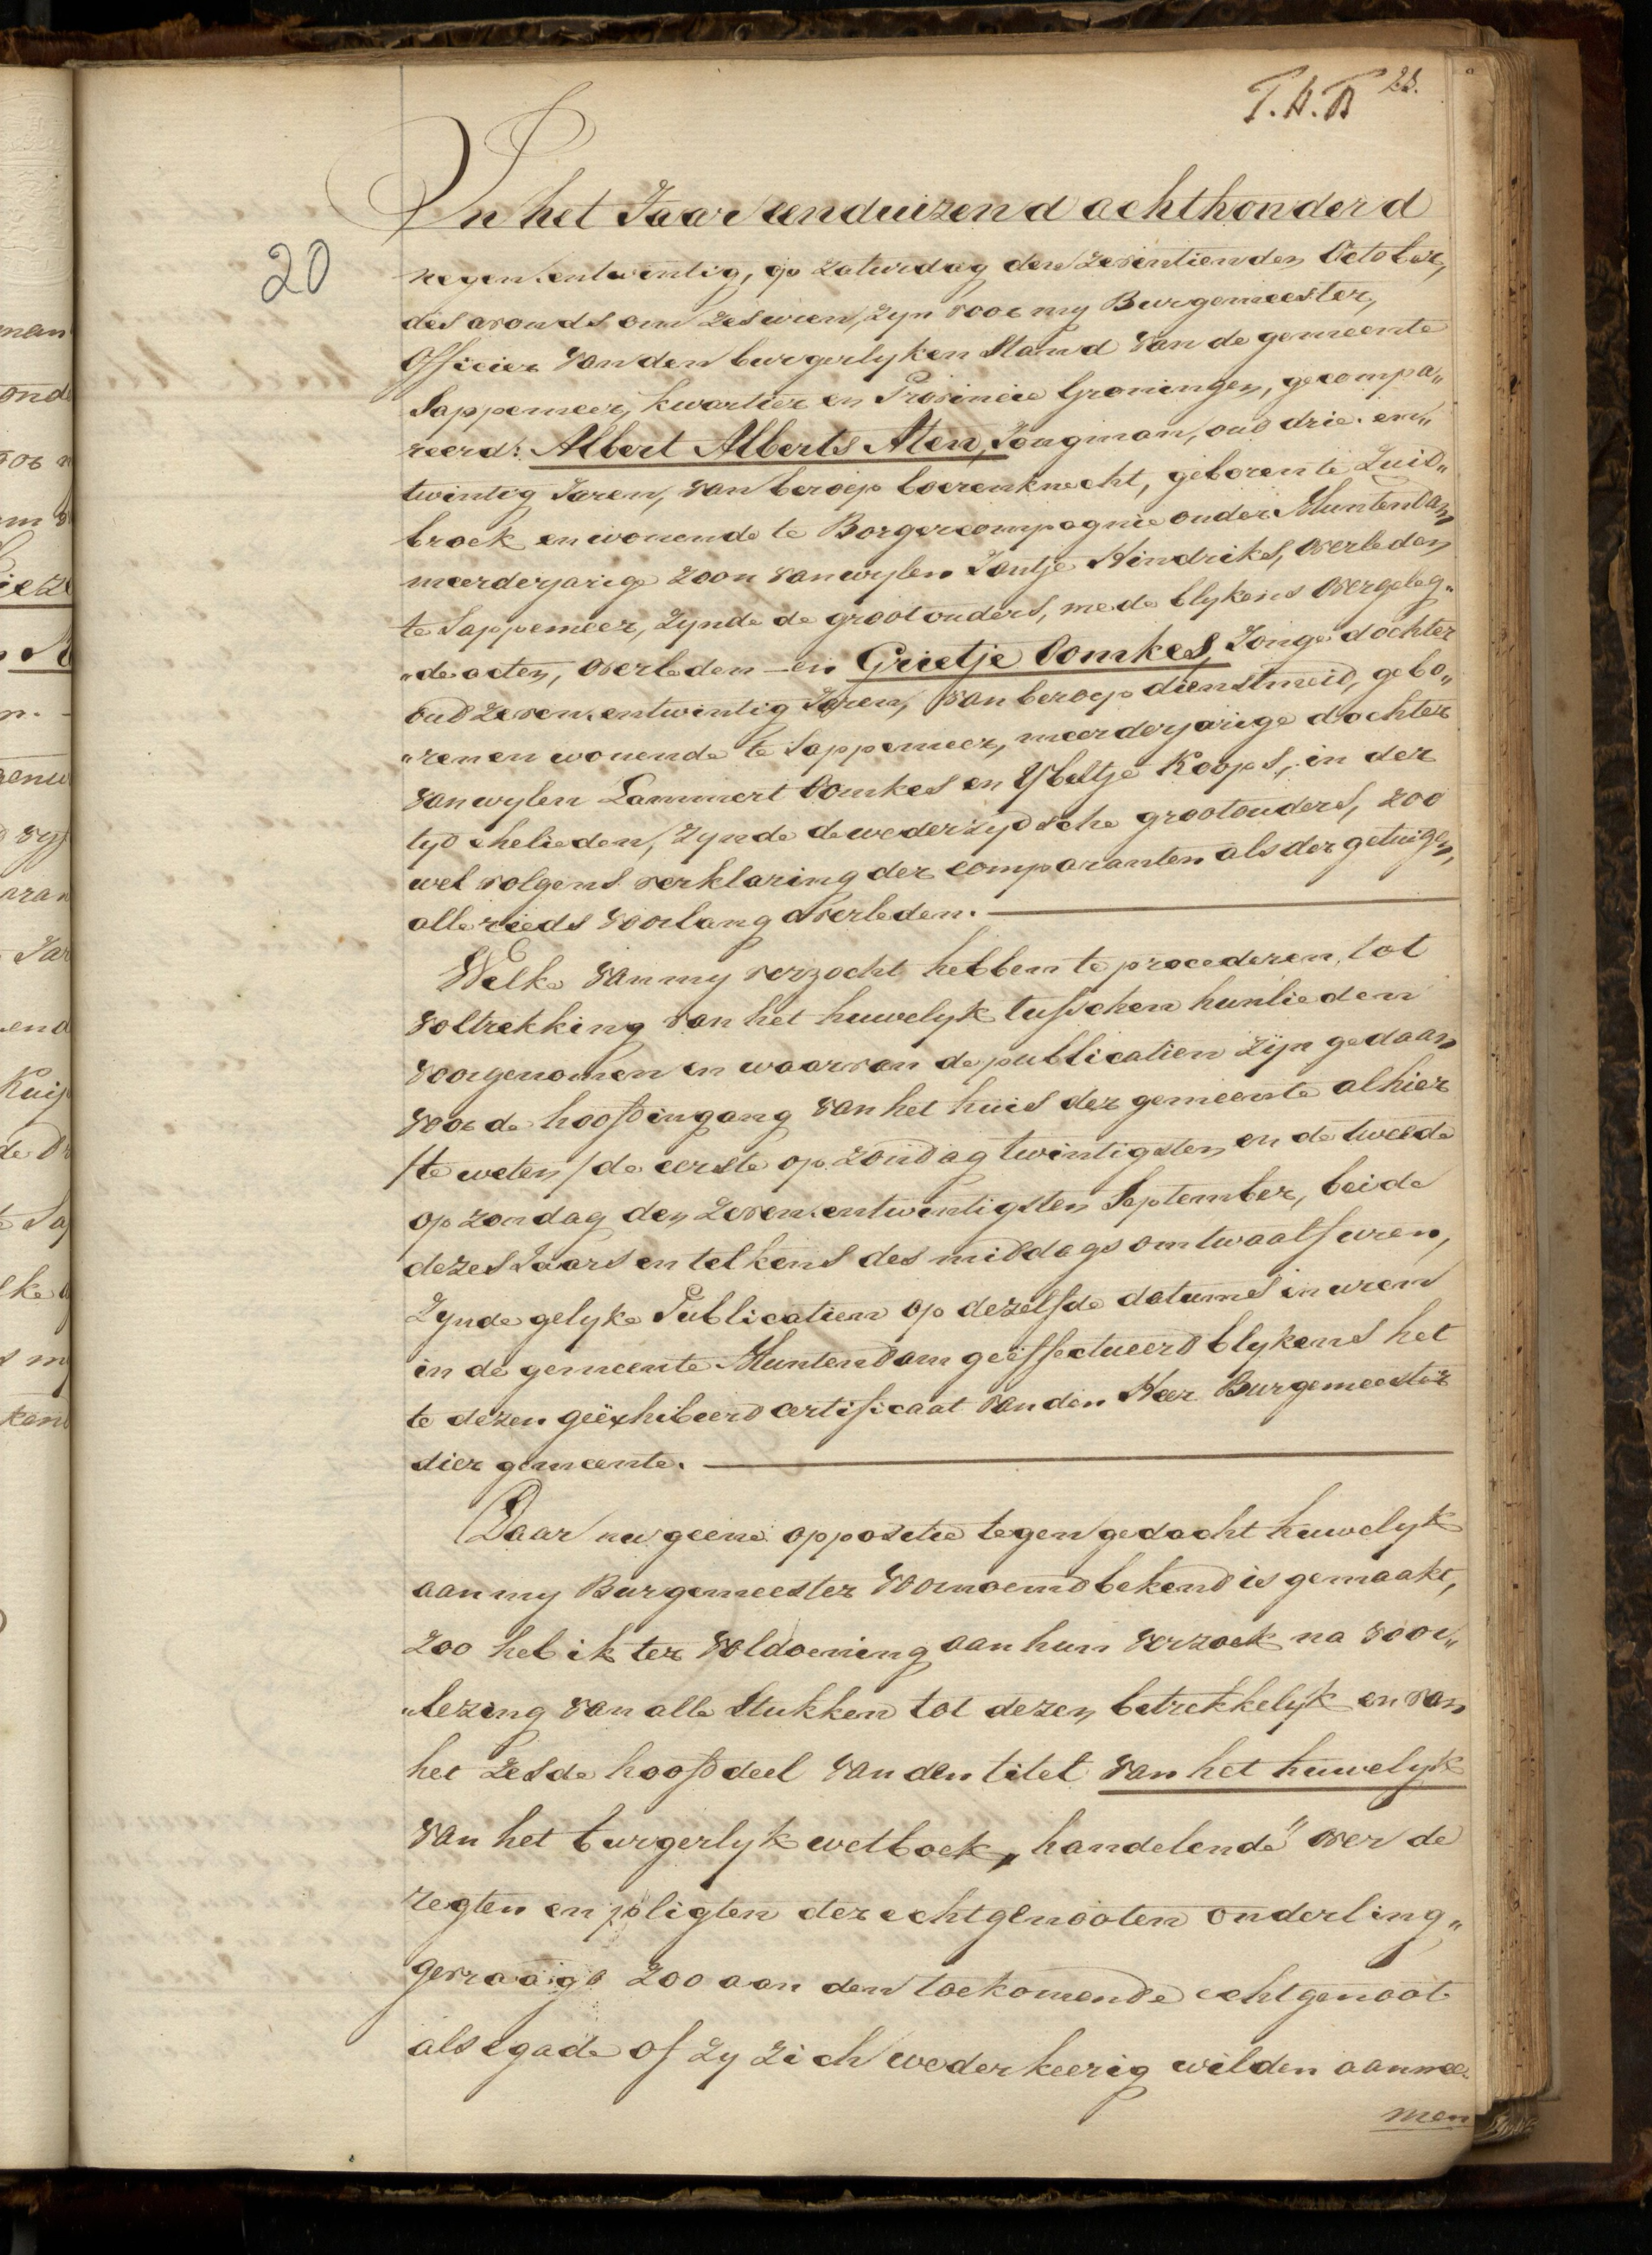 T.A.B 23.
In het Jaar eenduizend achthonderd
20
negen.entwintig, op zaturdag den zeventienden October,
des avonds om zes uren, zyn voor my Burgemeester,
Officier van den burgerlyken Stand van de gemeente
Sappemeer, kwartier en Provincie Groningen, gecompa„
reerd: Albert Alberts Aten, Jongman, oud drie.en„
twintig Jaren, van beroep boerenknecht, geboren te Zuid„
broek en wonende te Borgercompagnie onder Muntendam
meerderjarige zoon van wylen Jantje Hindriks, overleden
te Sappemeer, zynde de grootouders, mede blykens overgeleg„
„de acten, overleden – en Grietje Oomkes, Jonge dochter
oud zeven.entwintig Jaren, van beroep dienstmeid, gebo„
„ren en wonende te Sappemeer, meerderjarige dochter
van wylen Lammert Oomkes en Ybeltje Koops, in der
tyd ehelieden, zynde de wederzydsche grootouders, zoo
wel volgens verklaring der comparanten als der getuigen,
alle reeds voorlang overleden.
Welke van my verzocht hebben te procederen, tot
voltrekking van het huwelyk tusschen hunlieden
voorgenomen en waarvan de publicatien zijn gedaan
voor de hoofdingang van het huis der gemeente alhier
/te weten/ de eerste op zondag twintigsten en de tweede
op zondag den zeven.entwintigsten September, beide
dezes Jaars en telkens des middags om twaalf uren,
zynde gelyke Publicatien op dezelfde datums en uren
in de gemeente Muntendam geëffectueerd blykens het
te dezen geëxhibeerd certificaat van den Heer Burgemeester
dier gemeente.
Daar nu geene oppositie tegen gedacht huwelyk
aan my Burgemeester voornoemd bekend is gemaakt,
zoo heb ik ter voldoening aan hun verzoek na voor„
„lezing van alle stukken tot dezen betrekkelyk en van
het zesde hoofddeel van den titel van het huwelyk
van het burgerlyk wetboek, „handelende" over de
regten en pligten der echtgenooten onderling„
gevraagd zoo aan den toekomende echtgenoot
als egade of zy zich wederkeerig wilden aannee„
men